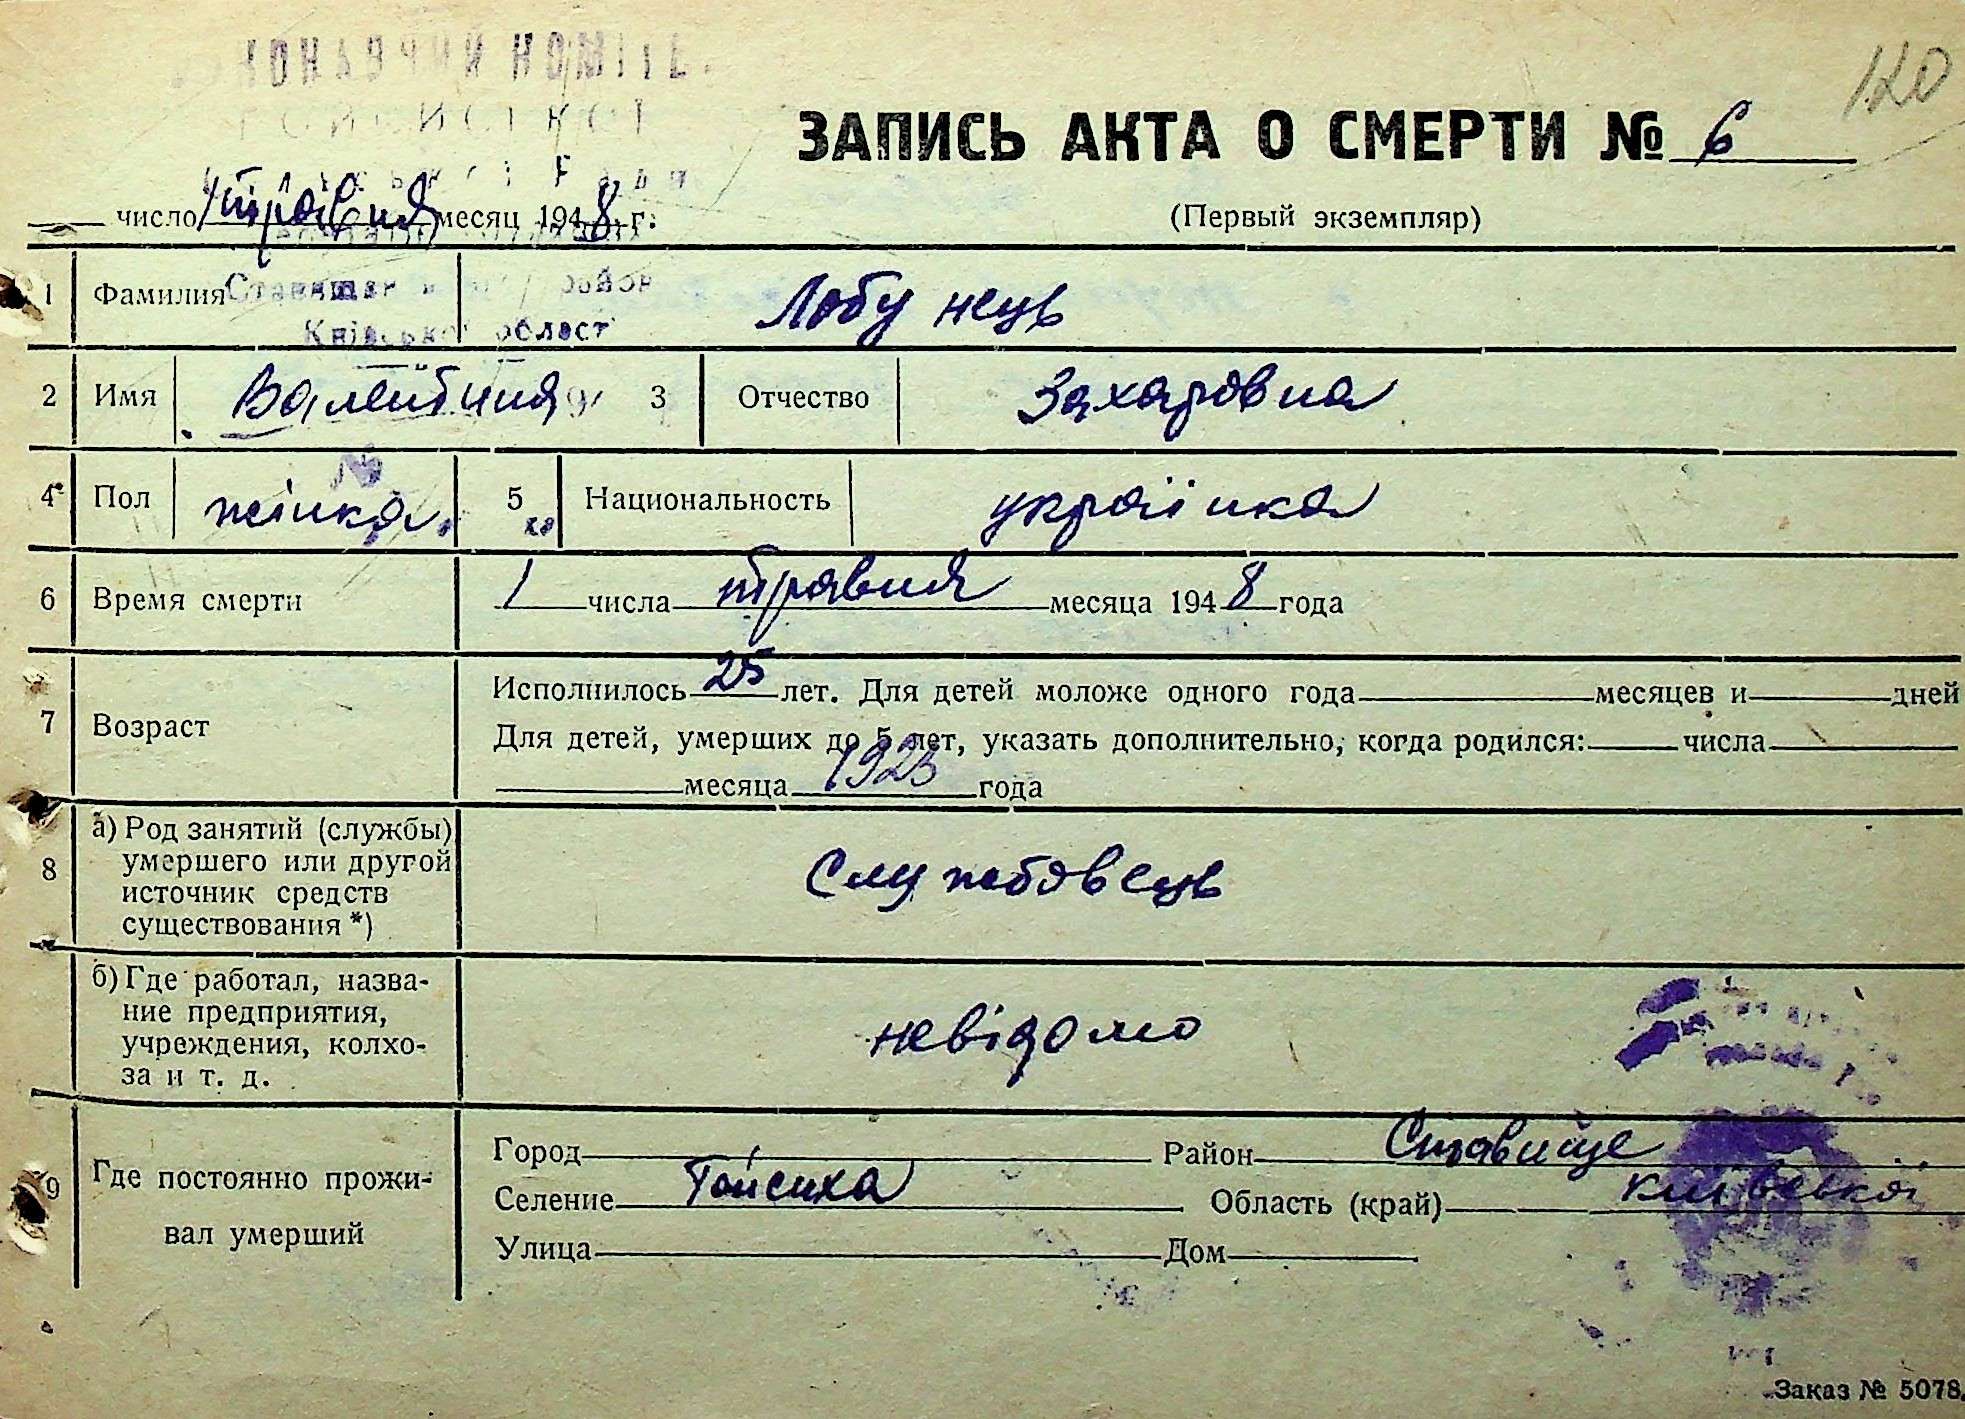 120
ЗАПИСЬ АКТА О СМЕРТИ № 6
число травня месяц 1948 г.
(Первый экземпляр)
1 Фамилия Лобунець
район
Київської област
2 Имя Валентина 3 Отчество Захаровна
4 Пол жінка. 5 Национальность українка
6 Время смерти 1 числа травня месяца 1948 года
7 Возраст Исполнилось 25 лет. Для детей моложе одного года месяцев и дней
Для детей, умерших до 5 лет, указать дополнительно, когда родился: числа
месяца 1923 года
8 а) Род занятий (службы)
умершего или другой
источник средств
существования *)
Службовець
б) Где работал, назва-
ние предприятия,
учреждения, колхо-
за и т. д.
невідомо
9 Где постоянно прожи-
вал умерший
Город Район Ставище
Селение Гойсиха Область (край) Київської
Улица Дом
Заказ № 5078.